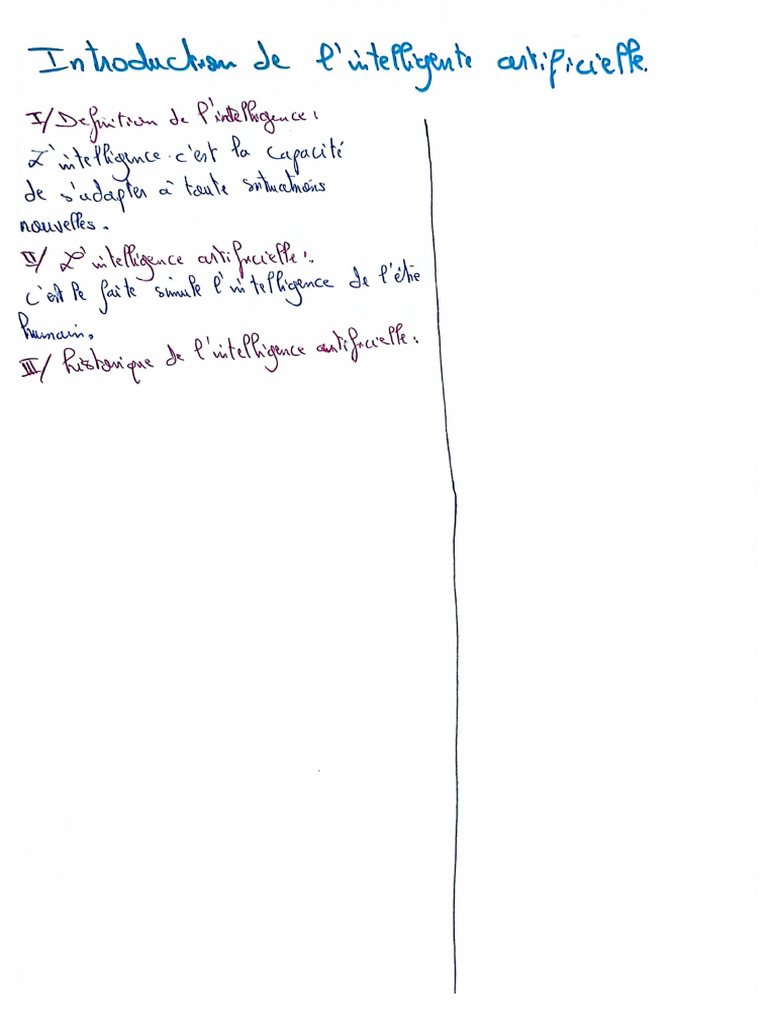 Introduction de l'intelligente artificielle.
I/ Definition de l'intelligence :
L'intelligence c'est la capacité
de s'adapter à toute situations
nouvelles.
II/ L'intelligence artificielle :
c'est le faite simule l'intelligence de l'être
humain.
III/ historique de l'intelligence artificielle :